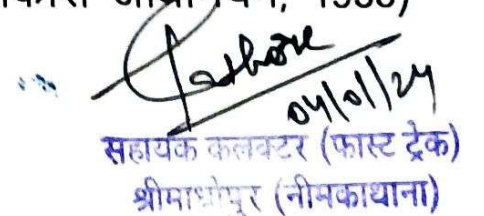 04/01/24
सहायक कलक्टर (फास्ट ट्रेक)
श्रीमाधोपुर (नीमकाथाना)